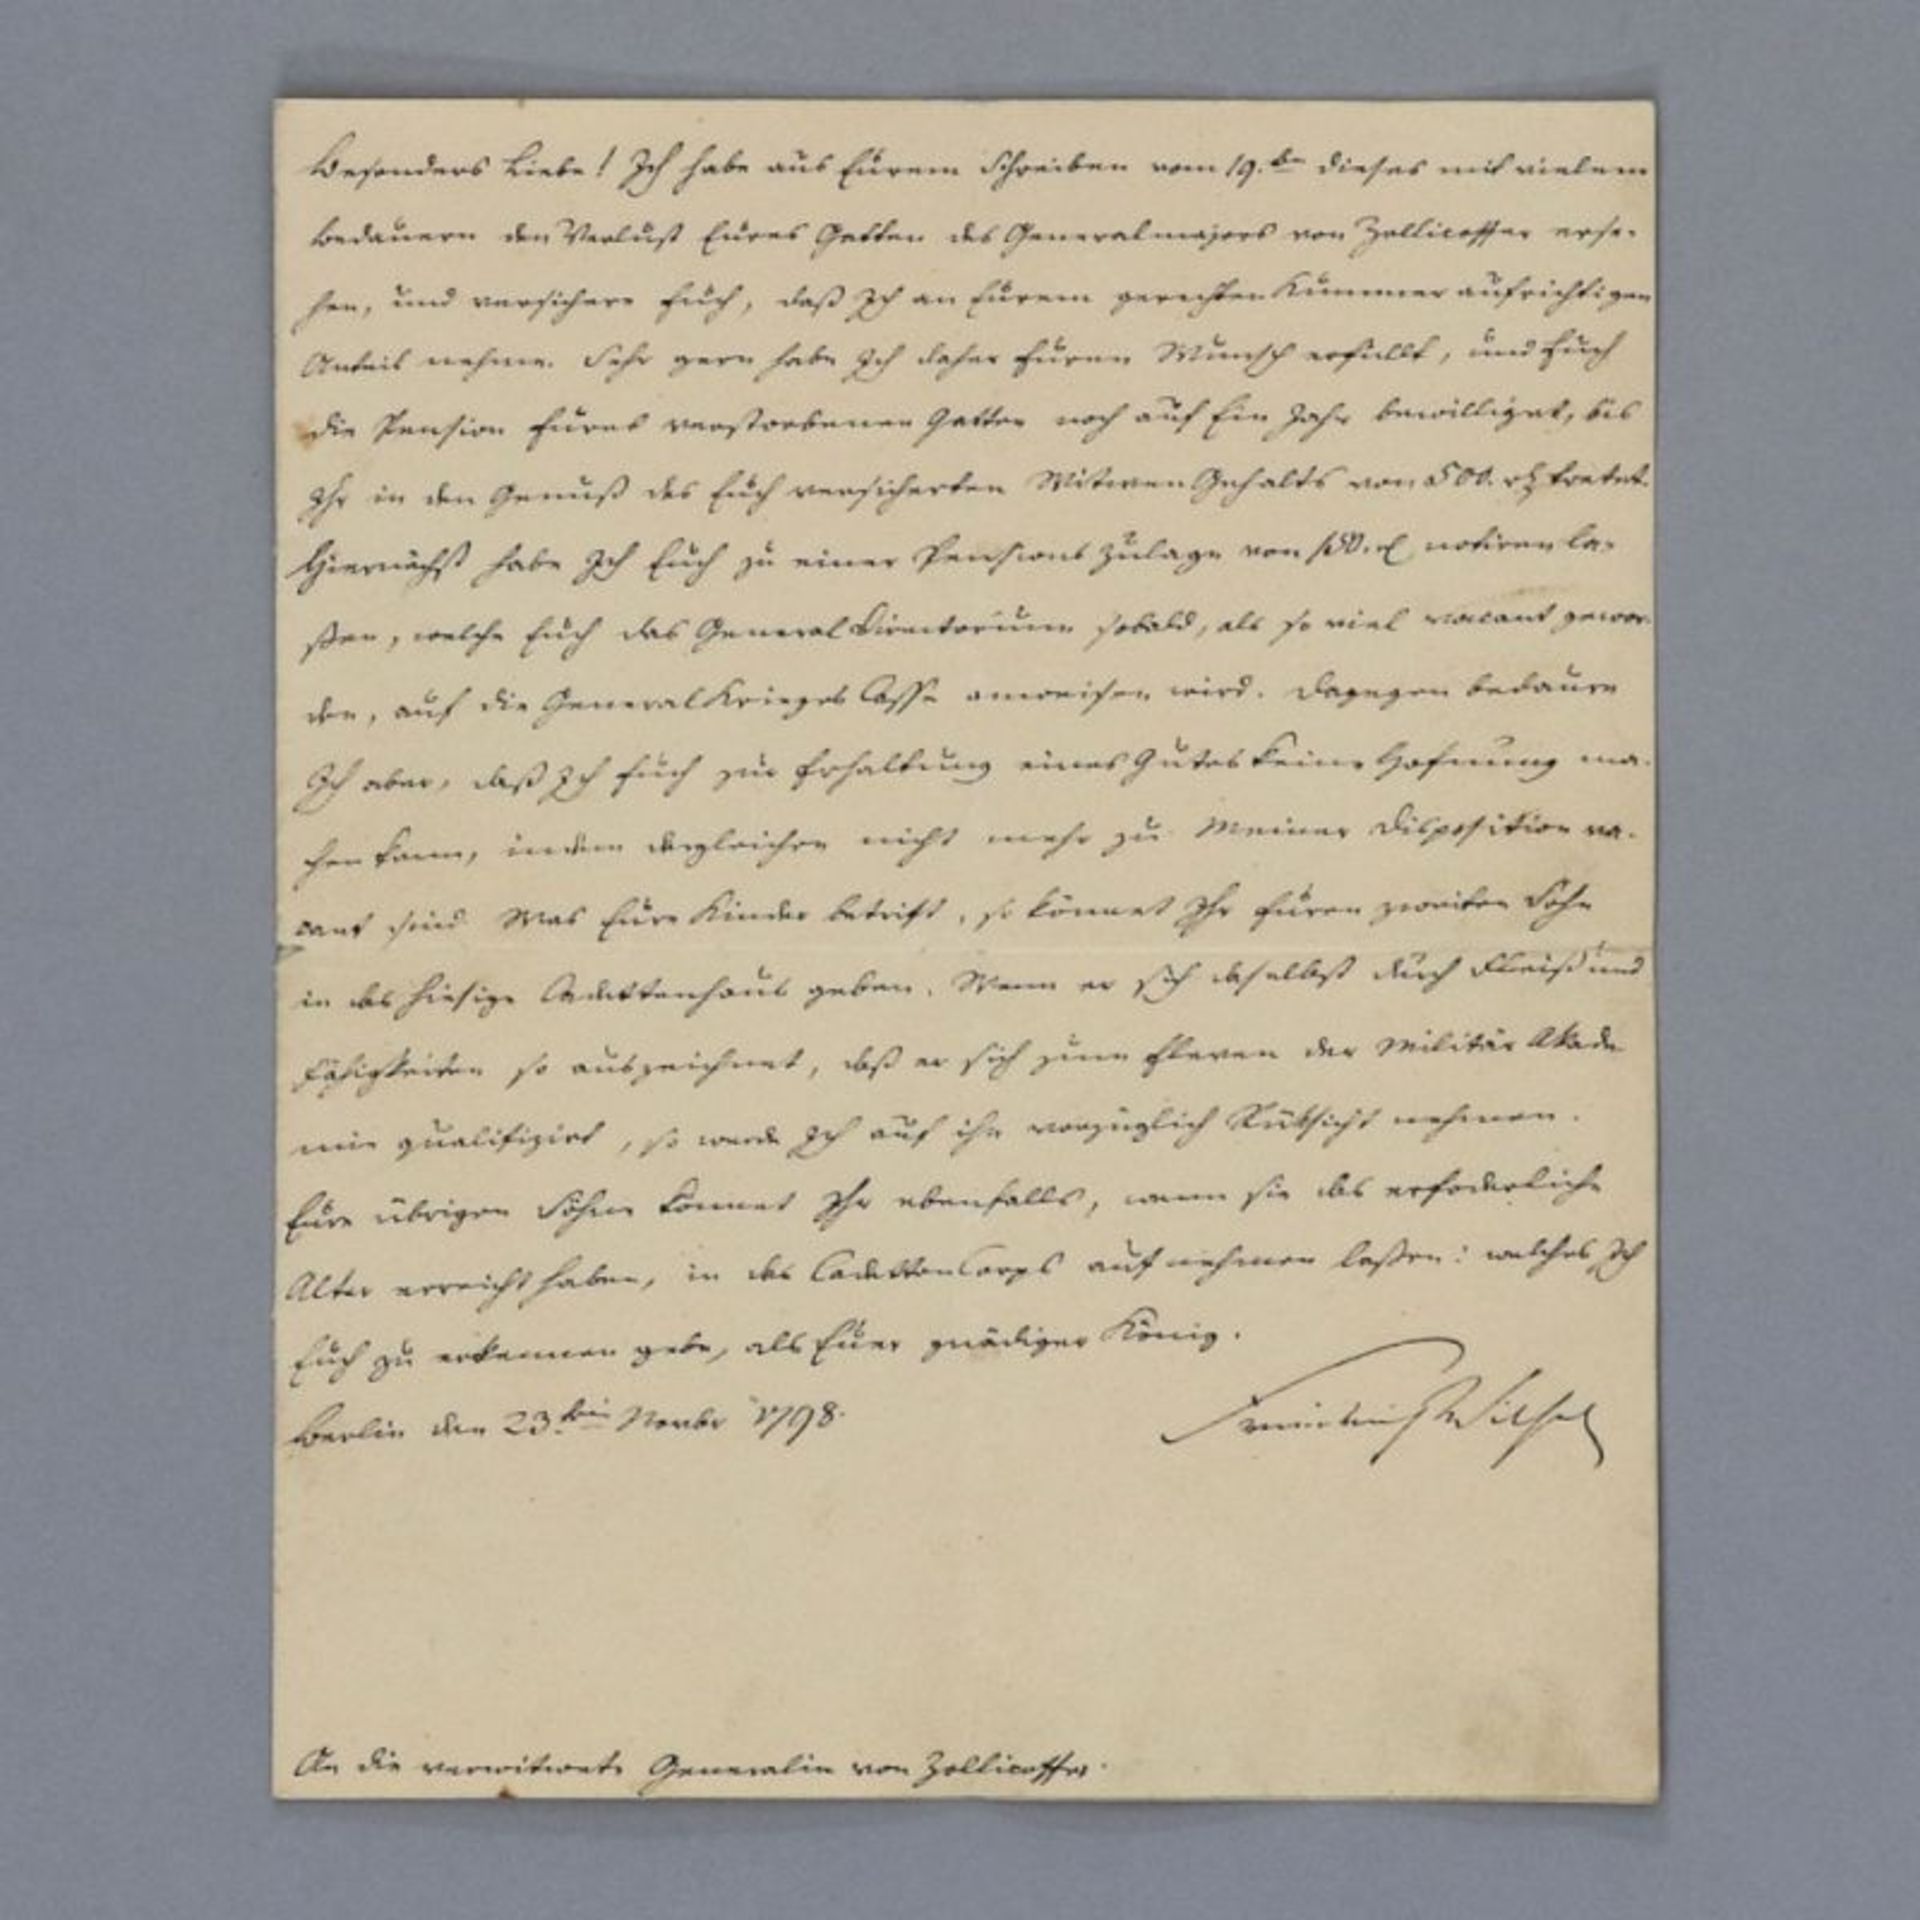 Besonders Liebe! Ich habe aus Eurem Schreiben vom 19.ten dieses mit vielem
Bedauern den Verlust Eures Gatten des Generalmajors von Zollicoffer erse-
hen, und versichere Euch, daß Ich an Eurem gerechten Kummer aufrichtigen
Anteil nehme. Sehr gern habe Ich daher Euren Wunsch erfüllt, und Euch
die Pension Eures verstorbenen Gatten noch auf Ein Jahr bewilliget, bis
Ihr in den Genuß des Euch versicherten Witwen Gehalts von 500. rh tretet.
Hiernächst habe Ich Euch zu einer Pensions Zulage von notiren la-
ßen, welche Euch das General Directorium sobald, als so viel vacant gewor-
den, auf die General Krieges Casse anweisen wird. Dagegen bedaure
Ich aber, daß Ich Euch zur Erhaltung eines Gutes keine Hofnung ma-
chen kann, indem dergleichen nicht mehr zu Meiner Disposition va-
cant sind. Was Eure Kinder betrift, so könnet Ihr Euren zweiten Sohn
in das hiesige Cadettenhaus geben. Wenn er sich daselbst durch Fleiß und
Fähigkeiten so auszeichnet, daß er sich zum Eleven der Militär Akade
mie qualifizirt, so werde Ich auf ihn vorzüglich Rüksicht nehmen.
Eure übrigen Söhne könnet Ihr ebenfalls, wenn sie das erforderliche
Alter erreicht haben, in das Cadetten Corps aufnehmen laßen: welches Ich
Euch zu erkennen gebe, als Euer gnädiger König.
Berlin den 23ten Novbr 1798.
Friedrich Wilhelm
An die verwitwete Generalin von Zollicoffer.